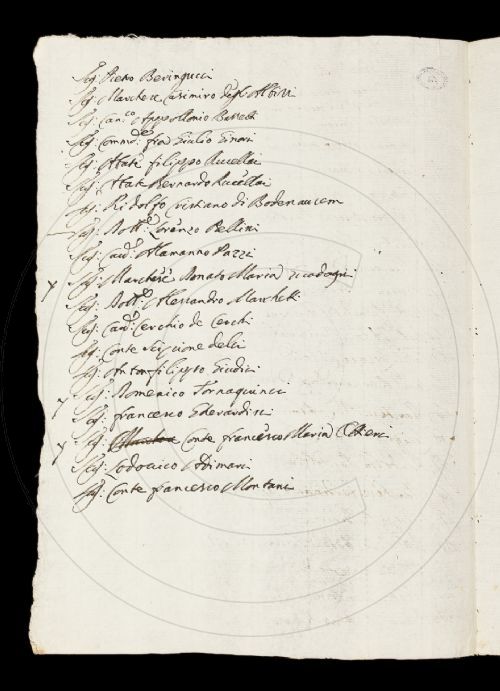 Sig: Pietro Beringucci
Sig: Marchese Casimiro degl'Albizi
Sig: Can:co Appollonio Bassetti
Sig: Comm:re fra Giulio
Sig: Abate filippo Rucellai
Sig: Abate Bernardo Rucellai
Sig: Ridolfo di Bodenaucem
Sig: Dott:e Lorenzo Bellini
Sig: Cav: Alamanno Pazzi
Sig: Marchese Donato Maria
Sig: Dott:e Alessandro Marchetti
Sig: Cav: Cerchio de Cerchi
Sig: Conte Scipione delci
Sig: Anton filippo Giudici
Sig: Domenico Tornaquinci
Sig: francesco
Sig: Conte francesco Maria
Sig: Lodovico Adimari
Sig: Conte francesco Montani